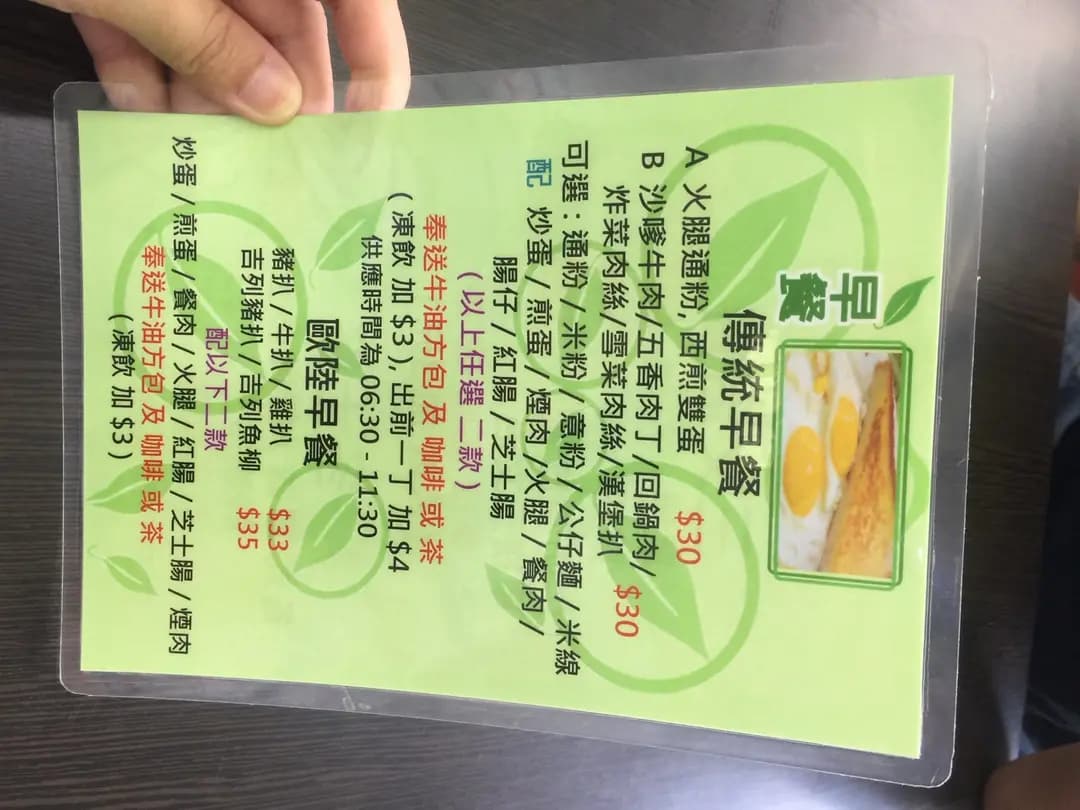 早餐
傳統早餐
A 火腿通粉, 西煎雙蛋 $30
B 沙嗲牛肉/五香肉丁/回鍋肉/
炸菜肉絲/雪菜肉絲/漢堡扒 $30
可選 : 通粉 / 米粉 / 意粉 / 公仔麵 / 米線
配 炒蛋 / 煎蛋 / 煙肉 /火腿 / 餐肉 /
腸仔 / 紅腸 / 芝士腸
( 以上任選 二款 )
奉送牛油方包 及 咖啡 或 茶
( 凍飲 加 $3 ), 出前一丁 加 $4
供應時間為 06:30 - 11:30
歐陸早餐
豬扒 / 牛扒 / 雞扒 $33
吉列豬扒 / 吉列魚柳 $35
配以下二款
炒蛋 / 煎蛋 / 餐肉 / 火腿 / 紅腸 / 芝士腸 / 煙肉
奉送牛油方包 及 咖啡 或 茶
( 凍飲 加 $3 )